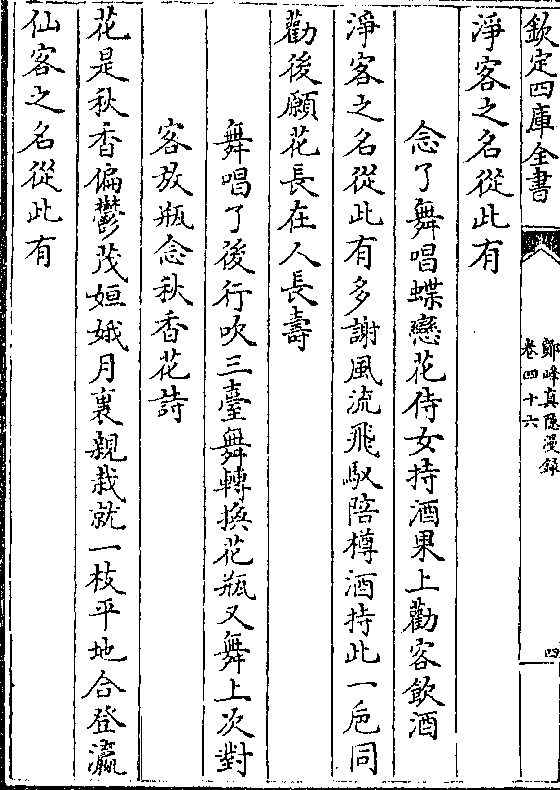 欽定四庫全書
鄮峰真隱漫録
卷四十六
四
淨客之名從此有
念了舞唱蝶戀花侍女持酒果上勸客飲酒
淨客之名從此有多謝風流飛馭陪樽酒持此一巵同
勸後願花長在人長壽
舞唱了後行吹三臺舞轉換花瓶又舞上次對
客放瓶念秋香花詩
花是秋香偏鬱茂姮娥月裏親栽就一枝平地合登瀛
仙客之名從此有